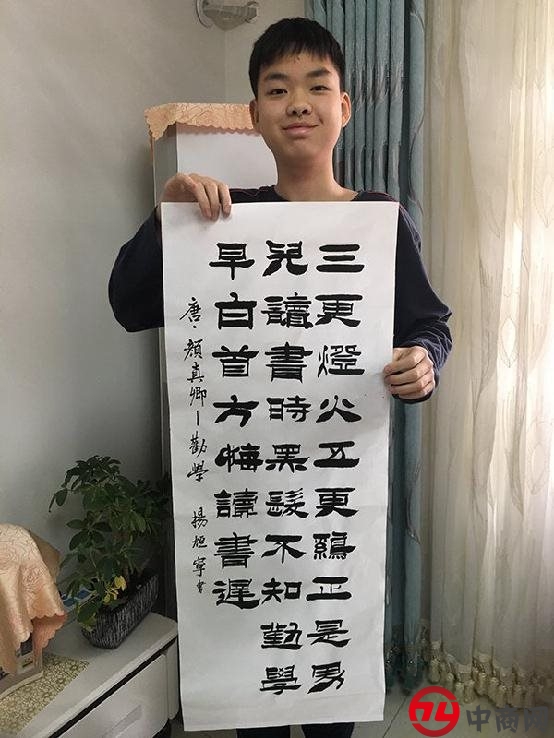 三更燈火五更鷄正是男
兒讀書時黑髮不知勤學
早白首方悔讀書遲
唐、顏真卿—勸學
中商网